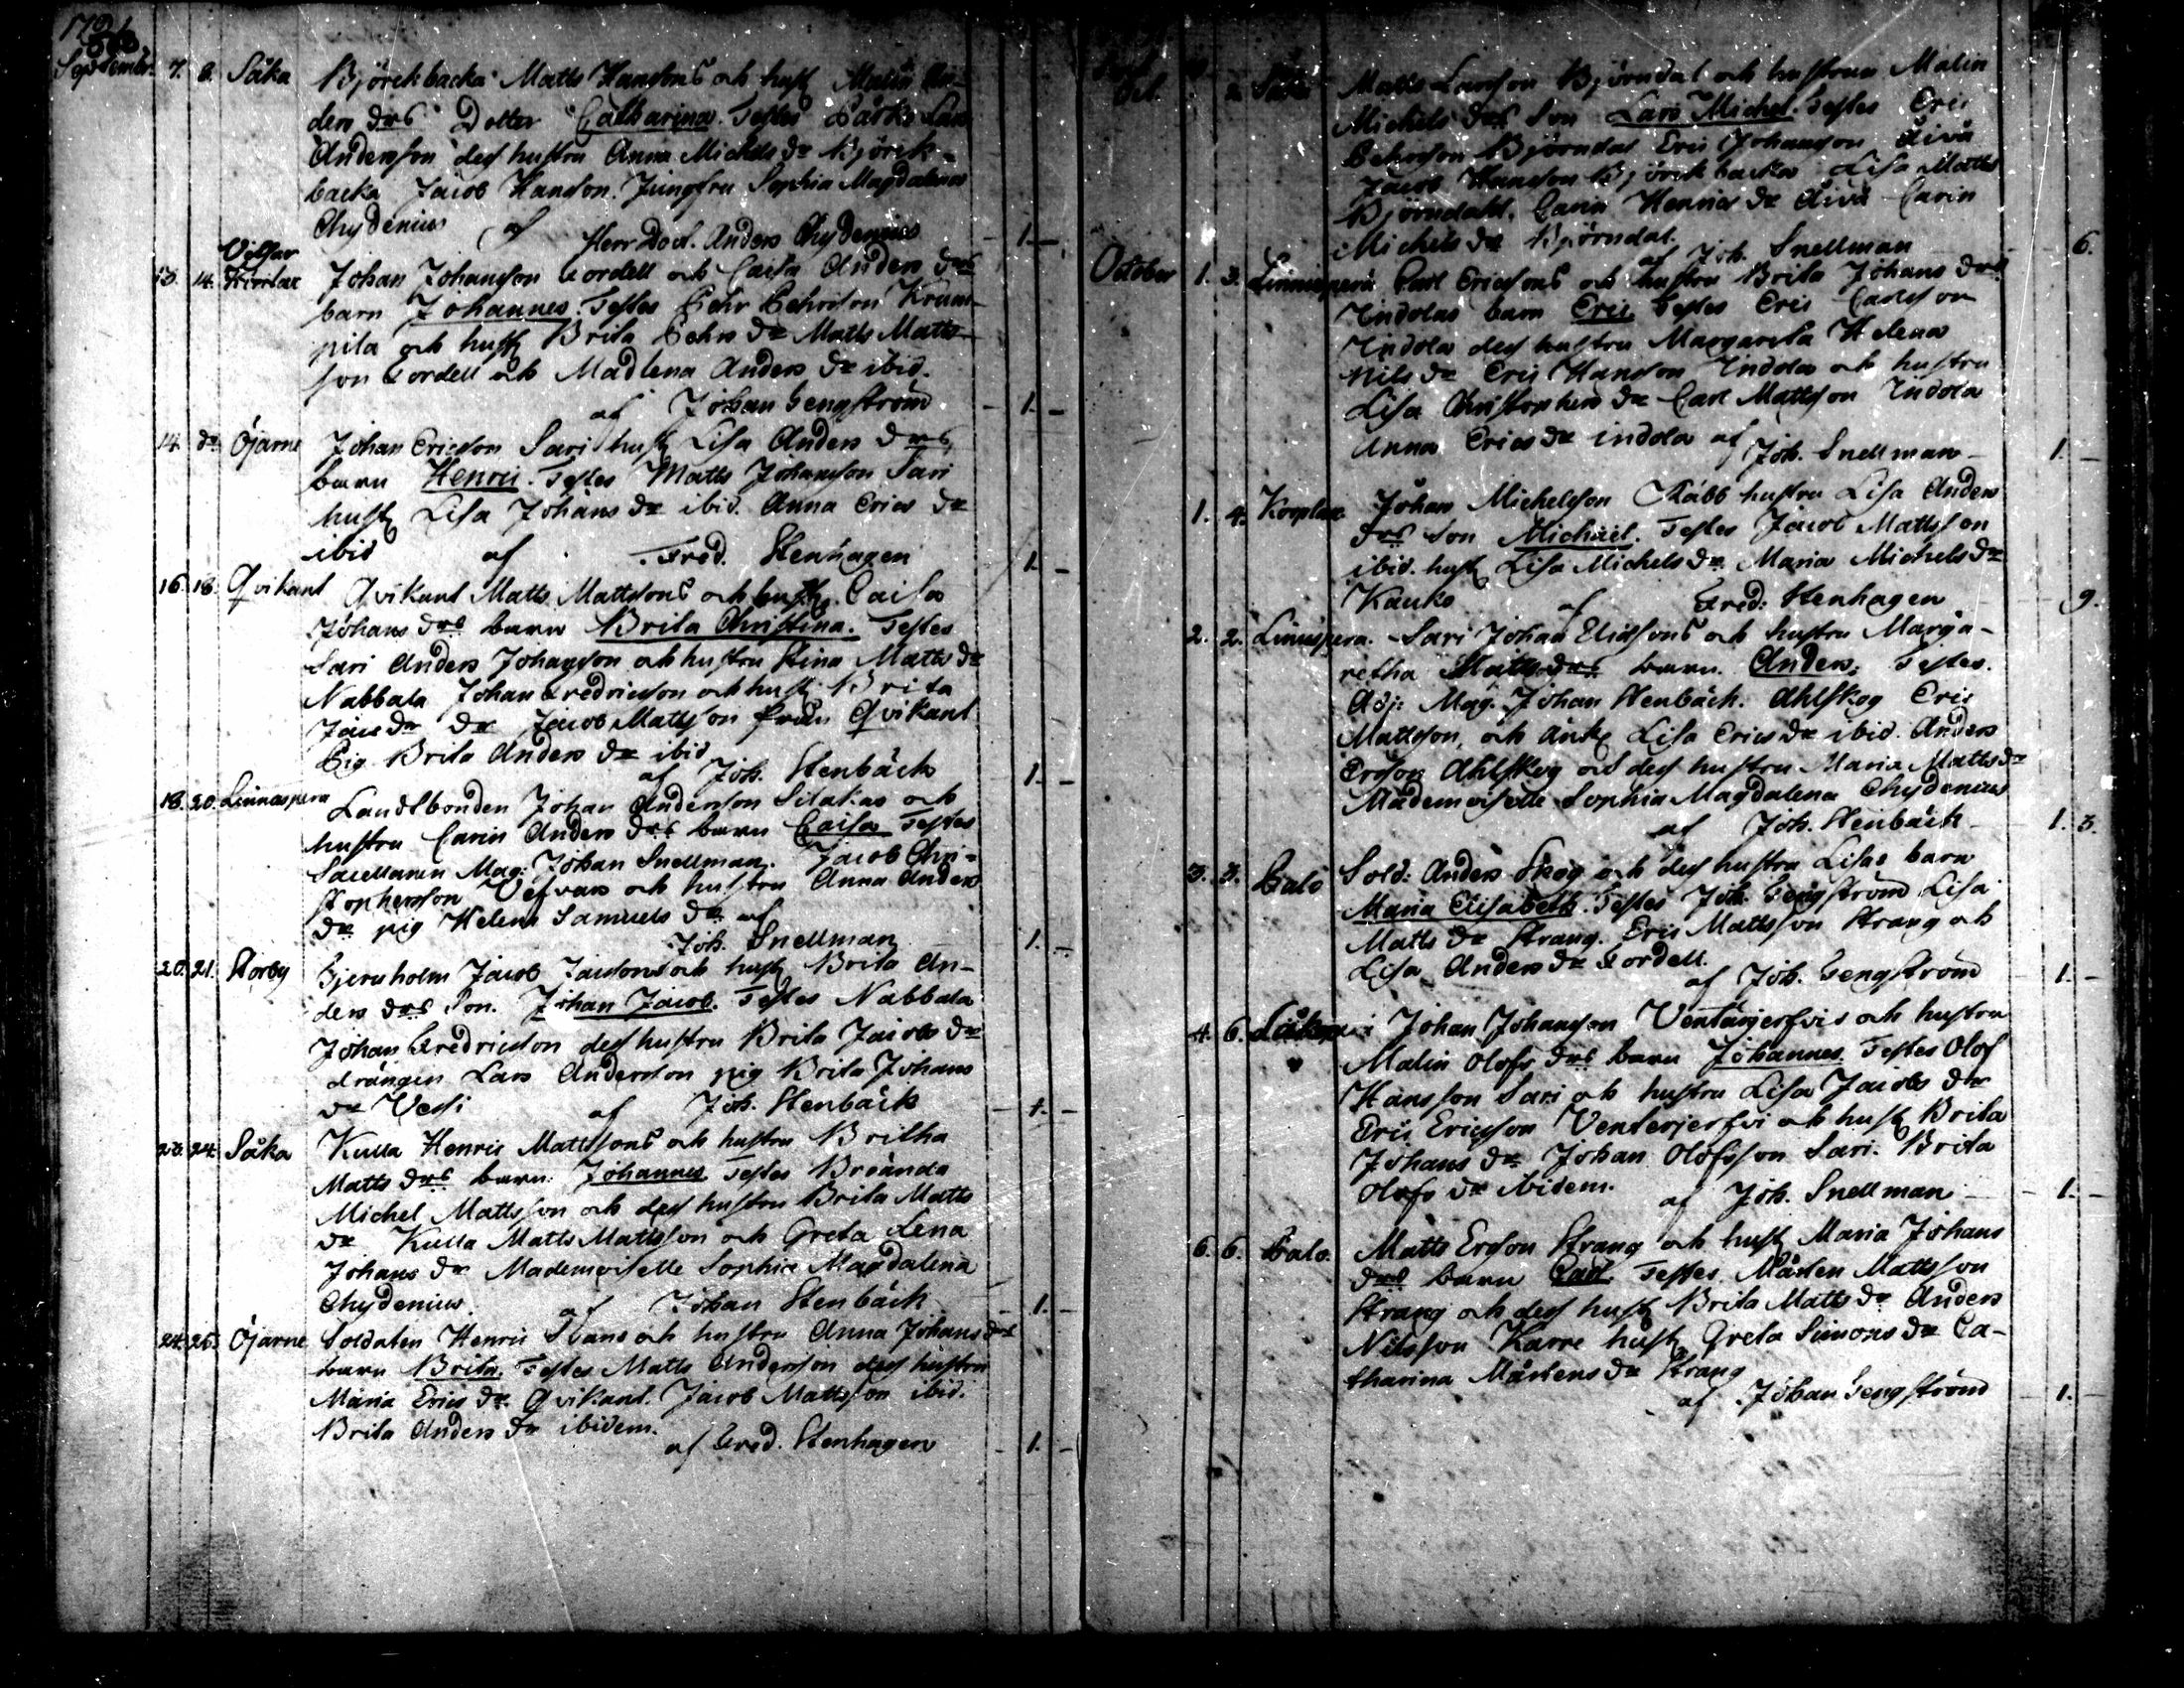 September 7. 8. Såka Björckbacka Matts Hansons och hust Malin An-
ders drs Dotter Catharina. Testes Lars
Andersson des hustru Anna Michels dr Björck-
backa Jacob Hanson. Jungfru Sophia Magdalena
Chydenius af Herr Doct. Anders Chydenius 1.
13. 14. Johan Johanson Cordell och Caisa Anders drs
barn Johannes. Testes Pehr Pehrsson Krum-
pila och hust Brita Pehrs dr Matts Matts-
son Cordell och Madlena Anders dr ibid.
af Johan Tengström 1.
14. do Öjarne Johan Ericsson Sari hust Lisa Anders drs
barn Henric. Testes Matts Johanson Sari
hust Lisa Johans dr ibid. Anna Erics dr
ibid af Fred. Stenhagen 1.
16. 18. Qvikant Qvikant Matts Mattsons och hust Caisa
Johans drs barn Brita Christina. Testes
Sari Anders Johanson och hustru Stina Matts dr
Nabbala Johan Fredricson och hust Brita
Jacob Mattson från Qvikant
Pig Brita Anders dr ibid
af Joh. Stenbäck 1.
18. 20. Linnuspera Landtbonden Johan Anderson Silakas och
hustru Carin Anders drs barn Caisa Testes
Sacellanen Mag: Johan Snellman. Jacob Chri-
stopherson och hustru Anna Anders
dr pig Helena Samuels dr af
Joh. Snellman 1.
20. 21. Storby Bjernholm Jacob Jacosons och hust Brita An-
ders drs Son. Johan Jacob. Testes Nabbala
Johan Fredricson des hustru Brita Jacobs dr
drängen Lars Anderson pig Brita Johans
dr Vessi af Joh. Stenbäck 1.
23. 24. Såka Kulla Henric Mattsons och hustru Britha
Matts drs barn. Johannes Testes Breanda
Michel Mattsson och des hustru Brita Matts
dr Kulla Matts Mattsson och Greta Lena
Johans dr Mademoiselle Sophia Magdalena
Chydenius. af Johan Stenbäck 1.
24. 25. Öjarne Soldaten Henric och hustru Anna Johans drs
barn Brita. Testes Matts Anderson des hustru
Maria Erics dr Qvikant. Jacob Mattsson ibid.
Brita Anders dr ibidem.
af Fred. Stenhagen 1.
Matts Larsson Björndal och hustrun Malin
Michels drs Son Lars Michel. Testes Eric
Pehrsson Björndal Eric Johanson Åivå
Jacob Hanson Björckbacka Lisa Matts
Björndahl. Carin Henrics dr Åivå Carin
Michels dr Björndal.
af Joh. Snellman 6.
October 1. 3. Linnuspera Carl Ericsons och hustru Brita Johans drs
Indolas barn Eric Testes Eric Carlsson
Indola des hustru Margareta Helena
Nils dr Eric Hanson Indola och hustru
Lisa Christophers dr Carl Mattsson Indola
Anna Erics dr indola af Joh. Snellman 1.
1. 4. Korplax Johan Michelsson Råbb hustru Lisa Anders
drs Son Michael. Testes Jacob Mattsson
ibid. hust Lisa Michels dr. Maria Michels dr
Kauko af Fred: Stenhagen 9.
2. 2. Linnuspera. Sari Johan Eliassons och hustru Marga-
retha Matts drs barn. Anders. Testes.
Adj: Mag. Johan Stenbäck. Ahlskog Eric
Mattsson, och änk Lisa Erics dr ibid. Anders
Ersson Ahlskog och des hustru Maria Matts dr
Mademoiselle Sophia Magdalena Chydenius
af Joh. Stenbäck 1. 3.
3. 3. Palo Sold: Anders Skog och des hustru Lisas barn
Maria Elisabeth. Testes Joh. Tengström Lisa
Matts dr Strang. Eric Mattsson Strang och
Lisa Anders dr Cordell.
af Joh. Tengström 1.
4. 6. Johan Johanson Ventänjerfvis och hustru
Malin Olofs drs barn Johannes. Testes Olof
Hansson Sari och hustru Lisa Jacobs dr
Eric Ericsson Ventenjerfvi och hust Brita
Johans dr Johan Olofsson Sari. Brita
Olofs dr ibidem. af Joh. Snellman 1.
6. 6. Palo. Matts Ersson Strang och hust Maria Johans
drs barn Carl. Testes. Mårten Mattsson
Strang och des hust Brita Matts dr Anders
Nilsson Karre hust Greta Simons dr Ca-
tharina Mårtens dr Strang
af Johan Tengström 1.